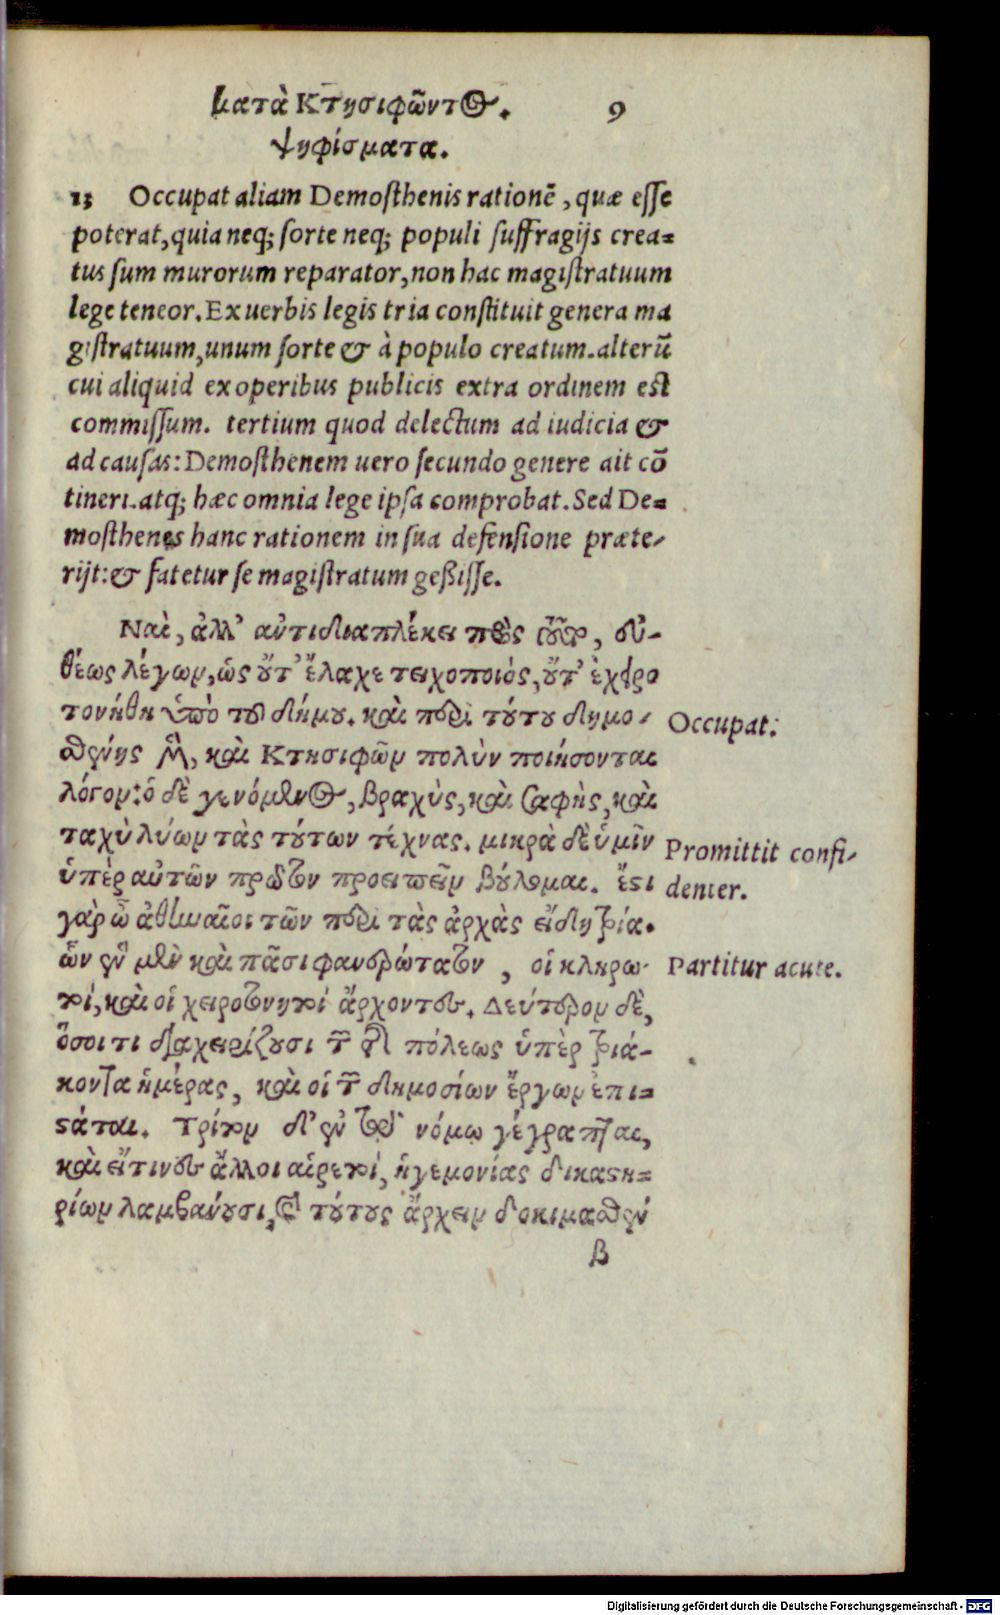 κατὰ Κτησιφῶντος. 9
ψηφίσματα.
13 Occupat aliam Demosthenis rationē, quæ esse
poterat, quia neq; sorte neq; populi suffragijs crea=
tus sum murorum reparator, non hac magistratuum
lege teneor. Ex uerbis legis tria constituit genera ma
gistratuum, unum sorte & à populo creatum. alterū
cui aliquid ex operibus publicis extra ordinem est
commissum. tertium quod delectum ad iudicia &
ad causas: Demosthenem uero secundo genere ait cō
tineri. atq; hæc omnia lege ipsa comprobat. Sed De=
mosthenes hanc rationem in sua defensione præte-
rijt: & fatetur se magistratum geßisse.
Ναὶ, ἀλλ' ἀντιδιαπλέκει πρὸς τοῦτο, εὐ-
θέως λέγων, ὡς οὔτ' ἔλαχε τειχοποιὸς, οὔτ' ἐχειρο
τονήθη ὑπὸ τοῦ δήμου. καὶ περὶ τούτου δημο-
Occupat.
σθένης μὲν, καὶ Κτησιφῶν πολὺν ποιήσονται
λόγον: ὁ δὲ γενόμενος, βραχὺς, καὶ σαφὴς, καὶ
ταχὺ λύων τὰς τούτων τέχνας. μικρὰ δὲ ὑμῖν
Promittit confi-
ὑπὲρ αὐτῶν πρῶτον προειπεῖν βούλομαι. ἔστι
denter.
γὰρ ὦ ἀθηναῖοι τῶν περὶ τὰς ἀρχὰς εἴδη τρία.
ὧν ἓν μὲν καὶ πᾶσι φανερώτατον, οἱ κληρω-
Partitur acute.
τοὶ, καὶ οἱ χειροτονητοὶ ἄρχοντες. Δεύτερον δὲ,
ὅσοι τι διαχειρίζουσι τῶν τῆς πόλεως ὑπὲρ τριά-
κοντα ἡμέρας, καὶ οἱ τῶν δημοσίων ἔργων ἐπι=
στάται. Τρίτον δ' ἐν τῷ νόμῳ γέγραπται,
καὶ εἴ τινες ἄλλοι αἱρετοὶ, ἡγεμονίας δικαστη=
ρίων λαμβάνουσι, καὶ τούτους ἄρχειν δοκιμασθέν
β
Digitalisierung gefördert durch die Deutsche Forschungsgemeinschaft - DFG